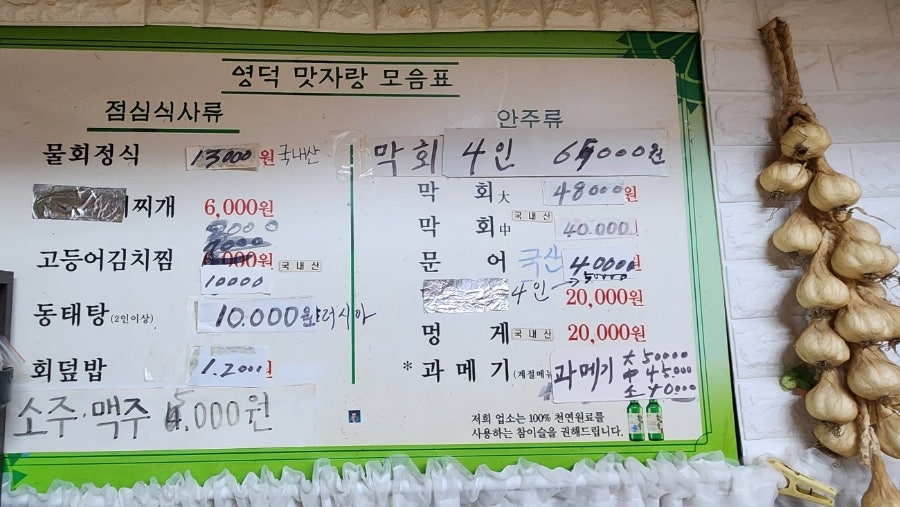 영덕 맛자랑 모음표
점심식사류
물회정식 13000원 국내산
찌개 6,000원
고등어김치찜 국내산
10000
동태탕(2인이상) 10.000원 러시아
회덮밥 1.2000
소주·맥주 5.000원
안주류
막회 4인 65000원
막 회 大 48000원
막 회 中 국내산 40.000
문 어 국산 40000
4인 → 50000
20,000원
멍 게 국내산 20,000원
*과 메 기 (계절메뉴 과메기 大 50000
中 45.000
小 40000
저희 업소는 100% 천연원료를
사용하는 참이슬을 권해드립니다.